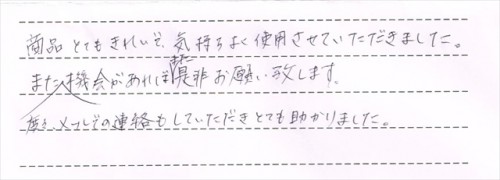 商品とてもきれいで、気持ちよく使用させていただきました。
また機会があれば是非お願い致します。
度々、メールでの連絡もしていただきとても助かりました。